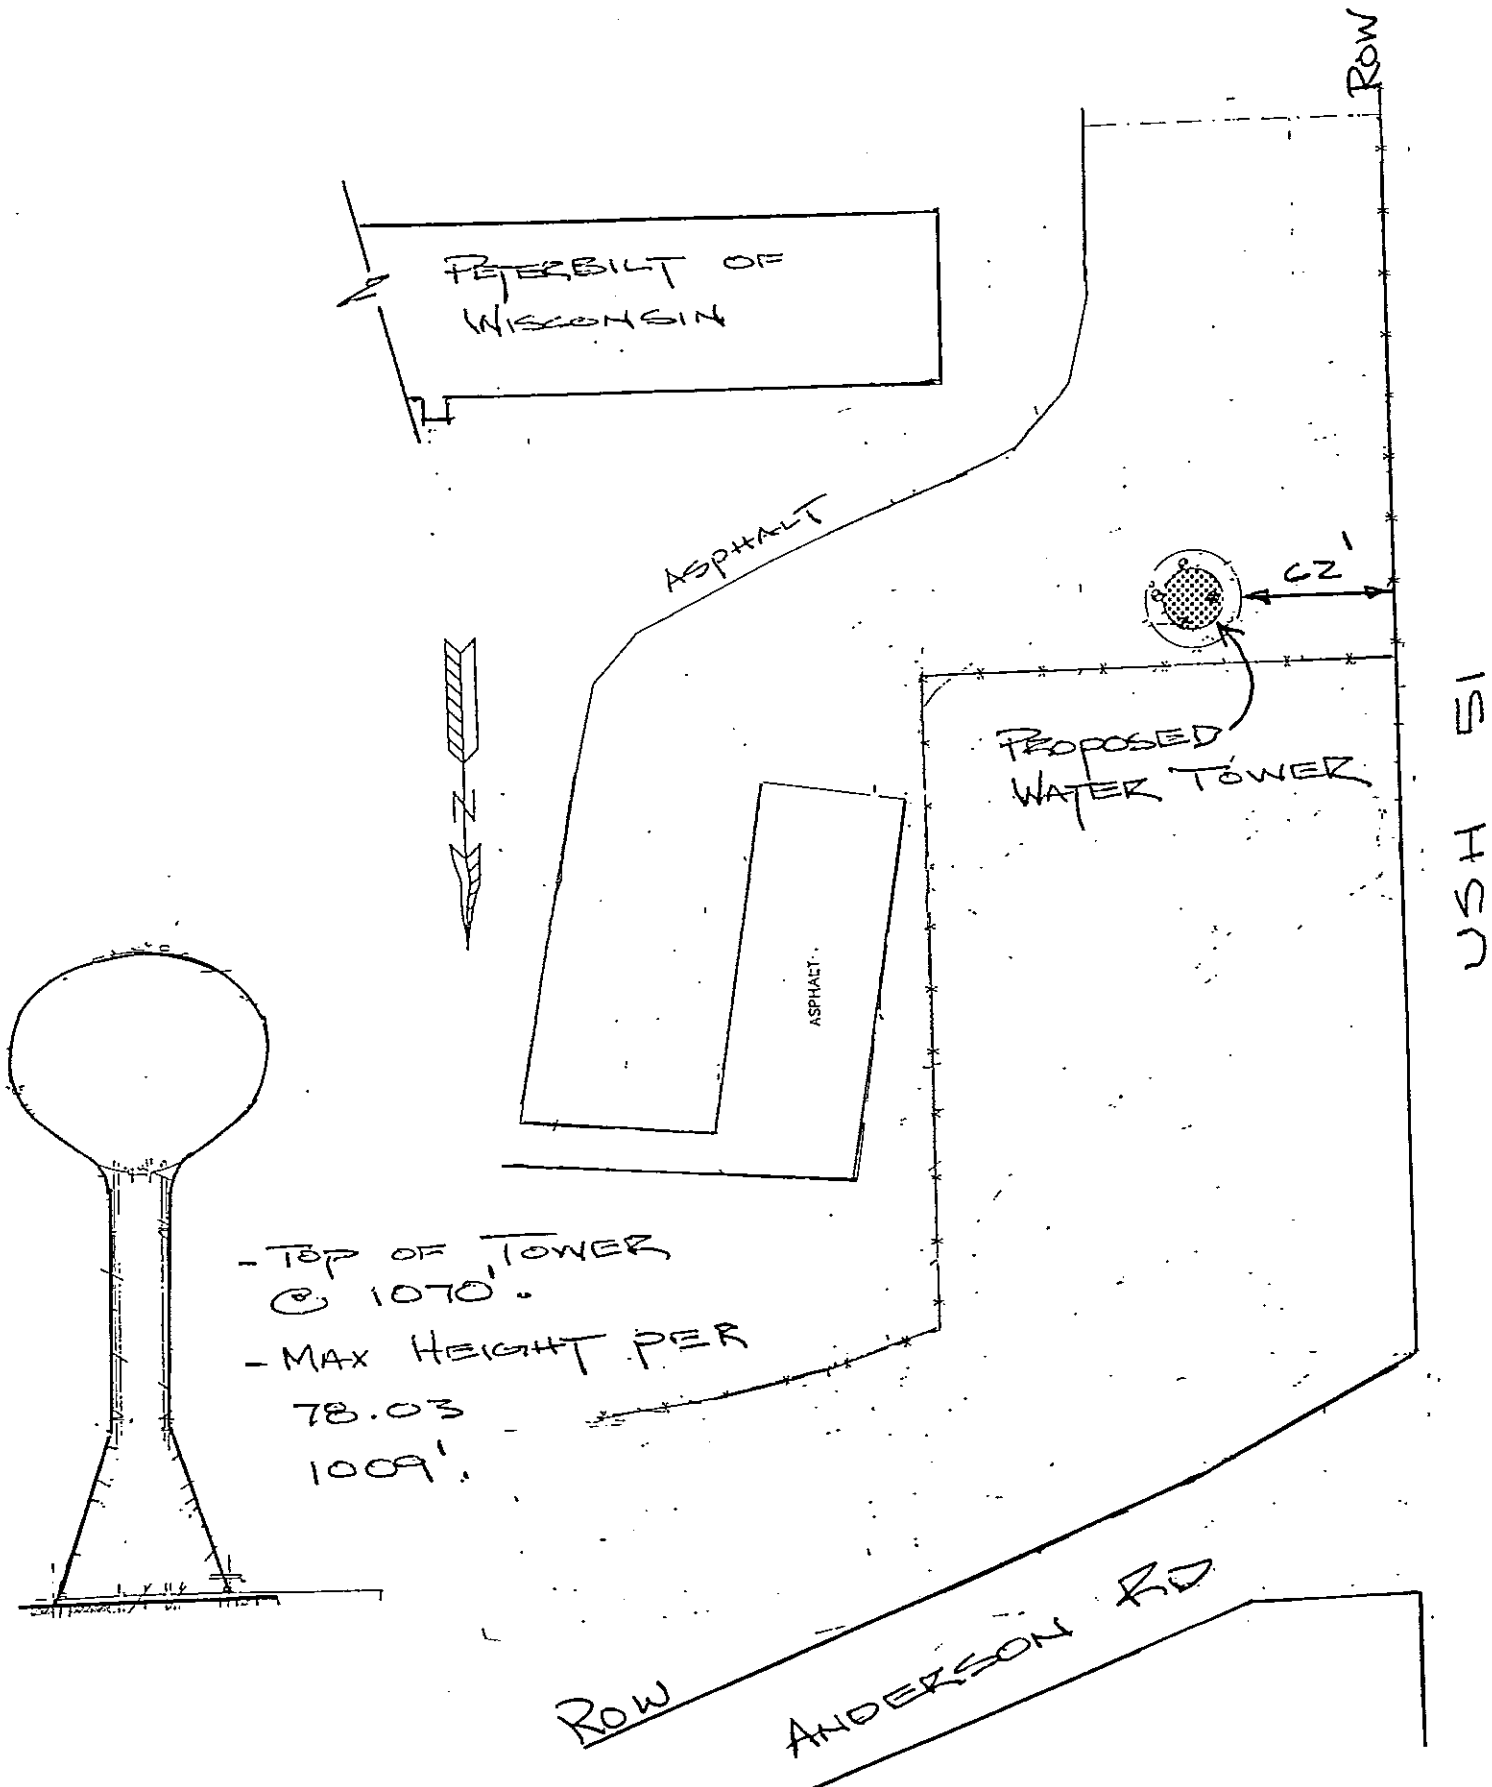 ROW
PETERBILT OF
WISCONSIN
ASPHALT
62'
PROPOSED
WATER TOWER
USH 51
N
ASPHALT
- TOP OF TOWER
@ 1070'.
- MAX HEIGHT PER
78.03
1009'.
ROW
ANDERSON RD